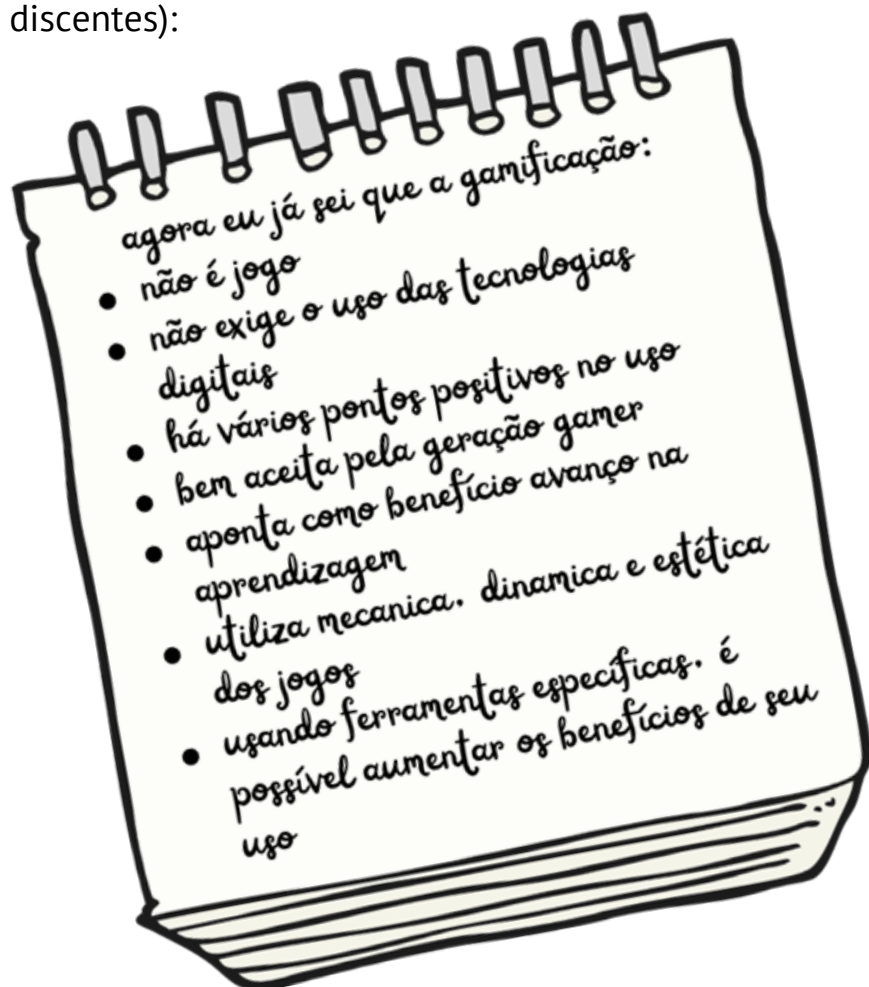 discentes):
agora eu já sei que a gamificação:
não é jogo
não exige o uso das tecnologias
digitais
há vários pontos positivos no uso
bem aceita pela geração gamer
aponta como benefício avanço na
aprendizagem
utiliza mecanica. dinamica e estética
dos jogos
usando ferramentas específicas. é
possível aumentar os benefícios de seu
uso